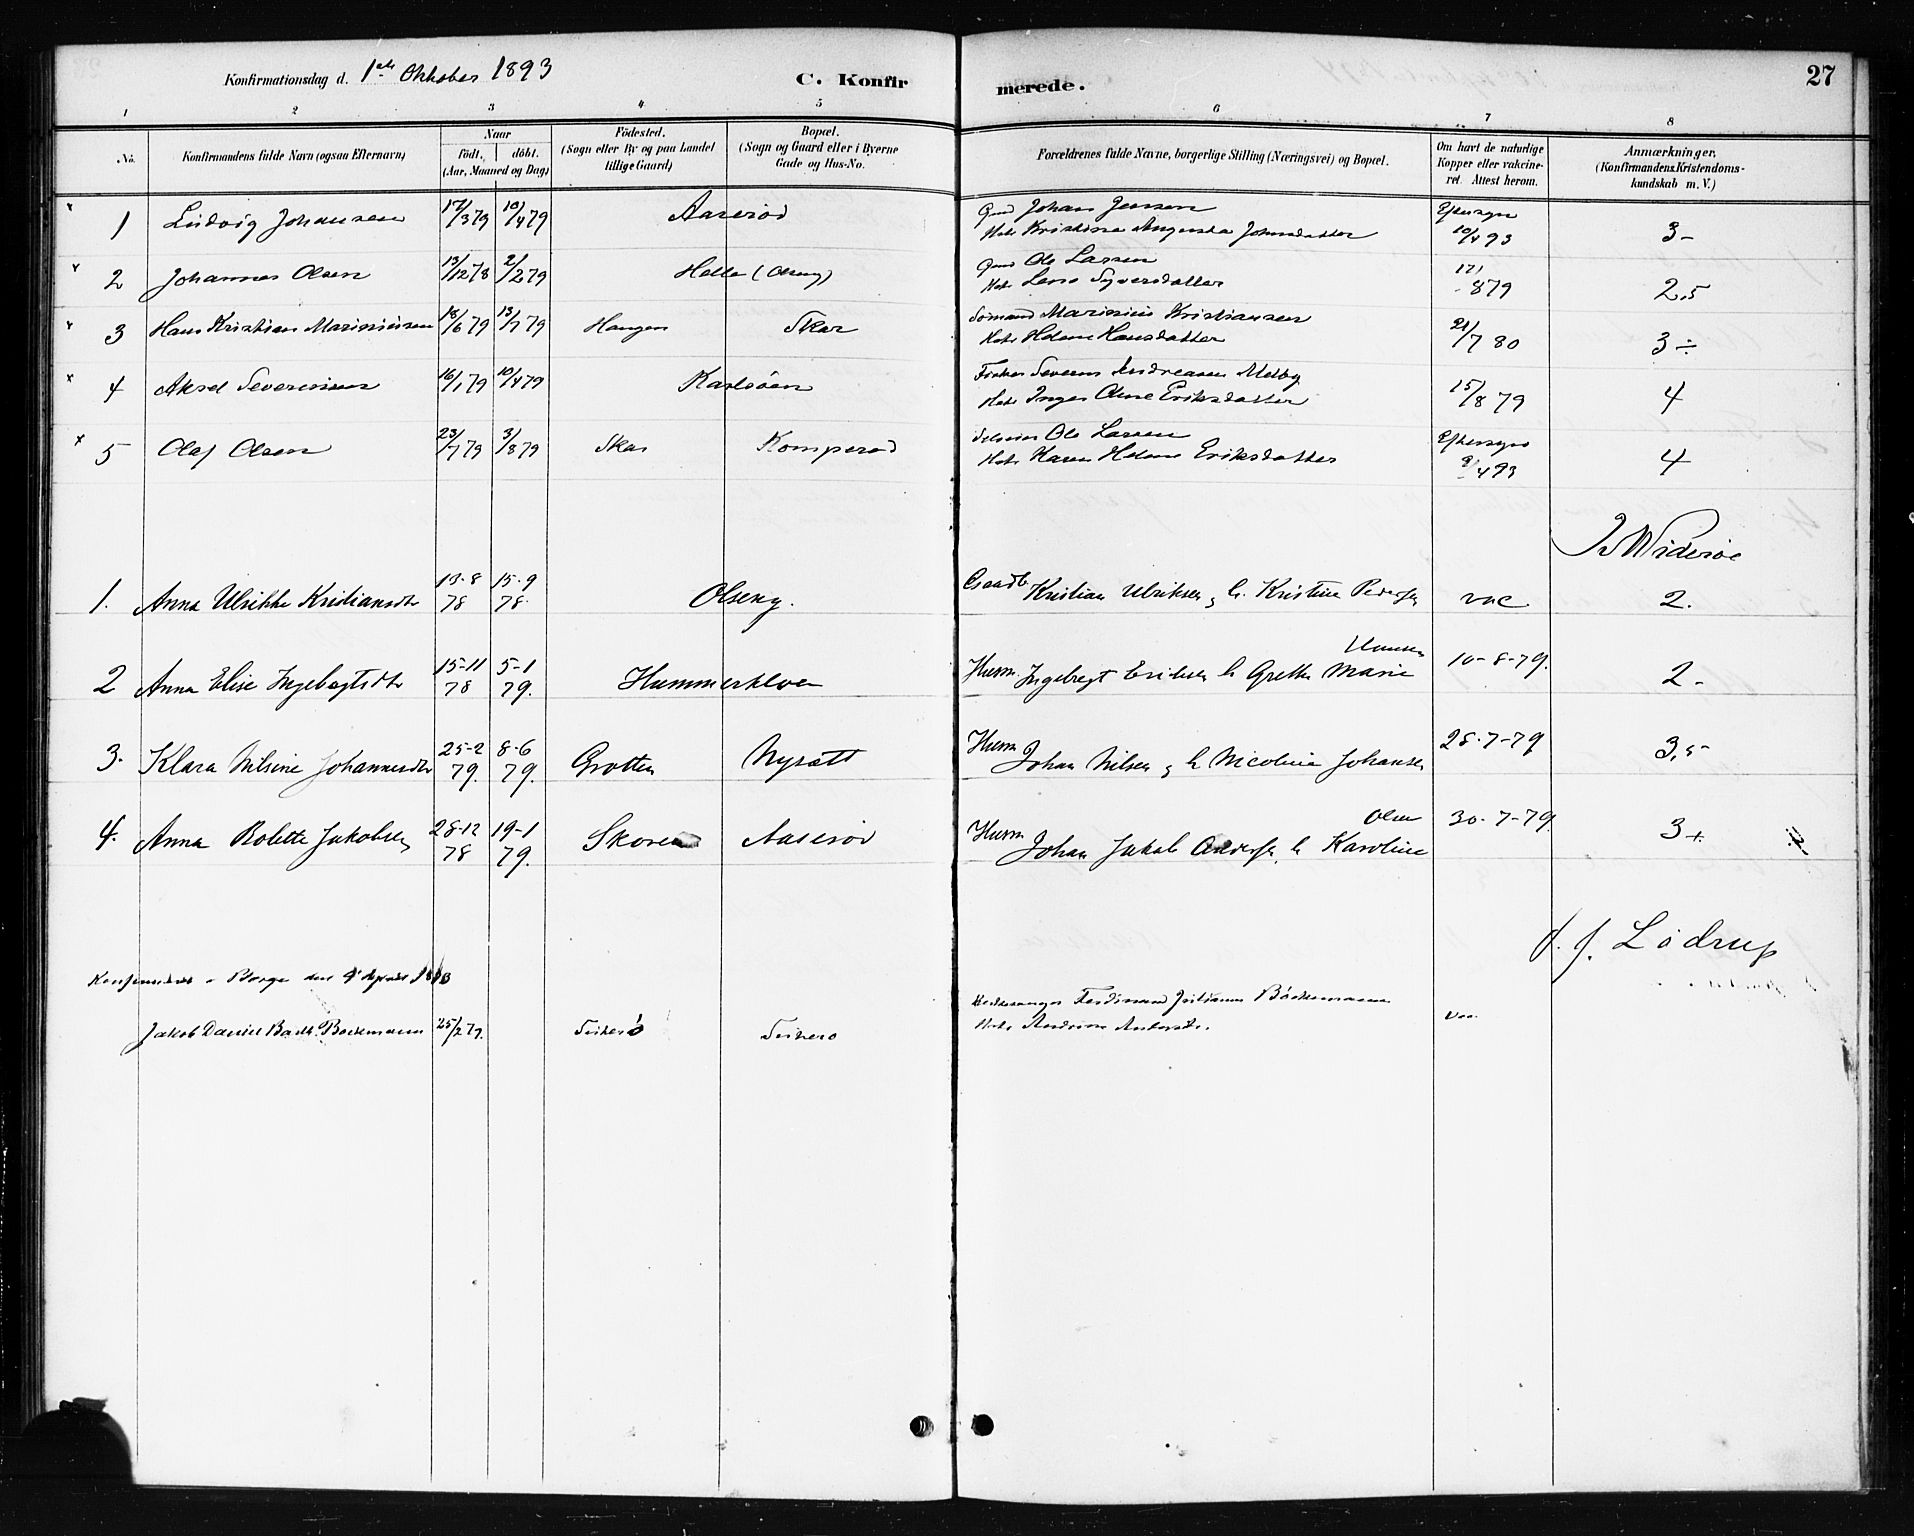 Konfirmationsdag d. 1ste Oktober 1893
C. Konfirmerede.
27
1 2 3 4 5 6 7 8
No.
Konfirmandens fulde Navn (ogsaa Efternavn)
Naar
födt. döbt.
(Aar, Maaned og Dag)
Födested.
(Sogn eller By og paa Landet
tillige Gaard)
Bopæl.
(Sogn og Gaard eller i Byerne
Gade og Hus-No.
Forældrenes fulde Navne, borgerlige Stilling (Næringsvei) og Bopæl.
Om havt de naturlige
Kopper eller vakcine-
ret. Attest herom.
Anmærkninger,
(Konfirmandens Kristendoms-
kundskab m. V.)
x 1 Ludvig Johansen 17/3 79 10/4 79 Aaserød Gmd Johan Jensen
Hst. Kristine Augusta Johnsdatter Eftersyn
10/4 93 3-
x 2 Johannes Olsen 13/12 78 2/2 79 Holte (Olseng) Gmd Ole Larsen
Hst. Lene Syversdatter 17/8 79 2,5
x 3 Hans Kristian Mariniusen 18/6 79 13/7 79 Haugen Skar Sömand Marinius Kristiansen
Hst. Helene Hansdatter 21/7 80 3 ÷
x 4 Aksel Severinsen 16/1 79 10/4 79 Karlsöen Fisker Severin Andreasen Melby
Hst. Inger Oline Eriksdatter 15/8 79 4
x 5 Olaf Olsen 23/1 79 3/8 79 Skar Komperød Ole Larsen
Hst. Karen Helene Eriksdatter Eftersyn
9/4 93 4
Widerøe
1. Anna Ulrikke Kristiansdtr 13-8
78 15-9
78. Olseng. Gaardb. Kristian Ulriksen, h. Kristine Pedersen vac 2.
2 Anna Elise Ingebrgtsdtr 15-11
78 5-1
79. Hummerkloa Husm. Ingebregt Eriksen h Grethe Marie Hansen 10-8-79. 2-
3. Klara Nilsine Johannesdtr 25-2
79. 8-6
79. Grotten Nysætt Husm Johan Nilsen, h Nicoline Johansen 28-7-79 3,5
4. Anna Bolette Jakobsen 28-12
78 19-1
79. Skoren Aaserød Husm Johan Jakob Andersen, h Karoline Olsen 30-7-79. 3+
J. J. Lödrup
Konfirmeret i Borge den
Jakob Daniel Backe Bockmann 25/2 79. Ferdinand Julianus Böckemann
Hst. Andrine vac.